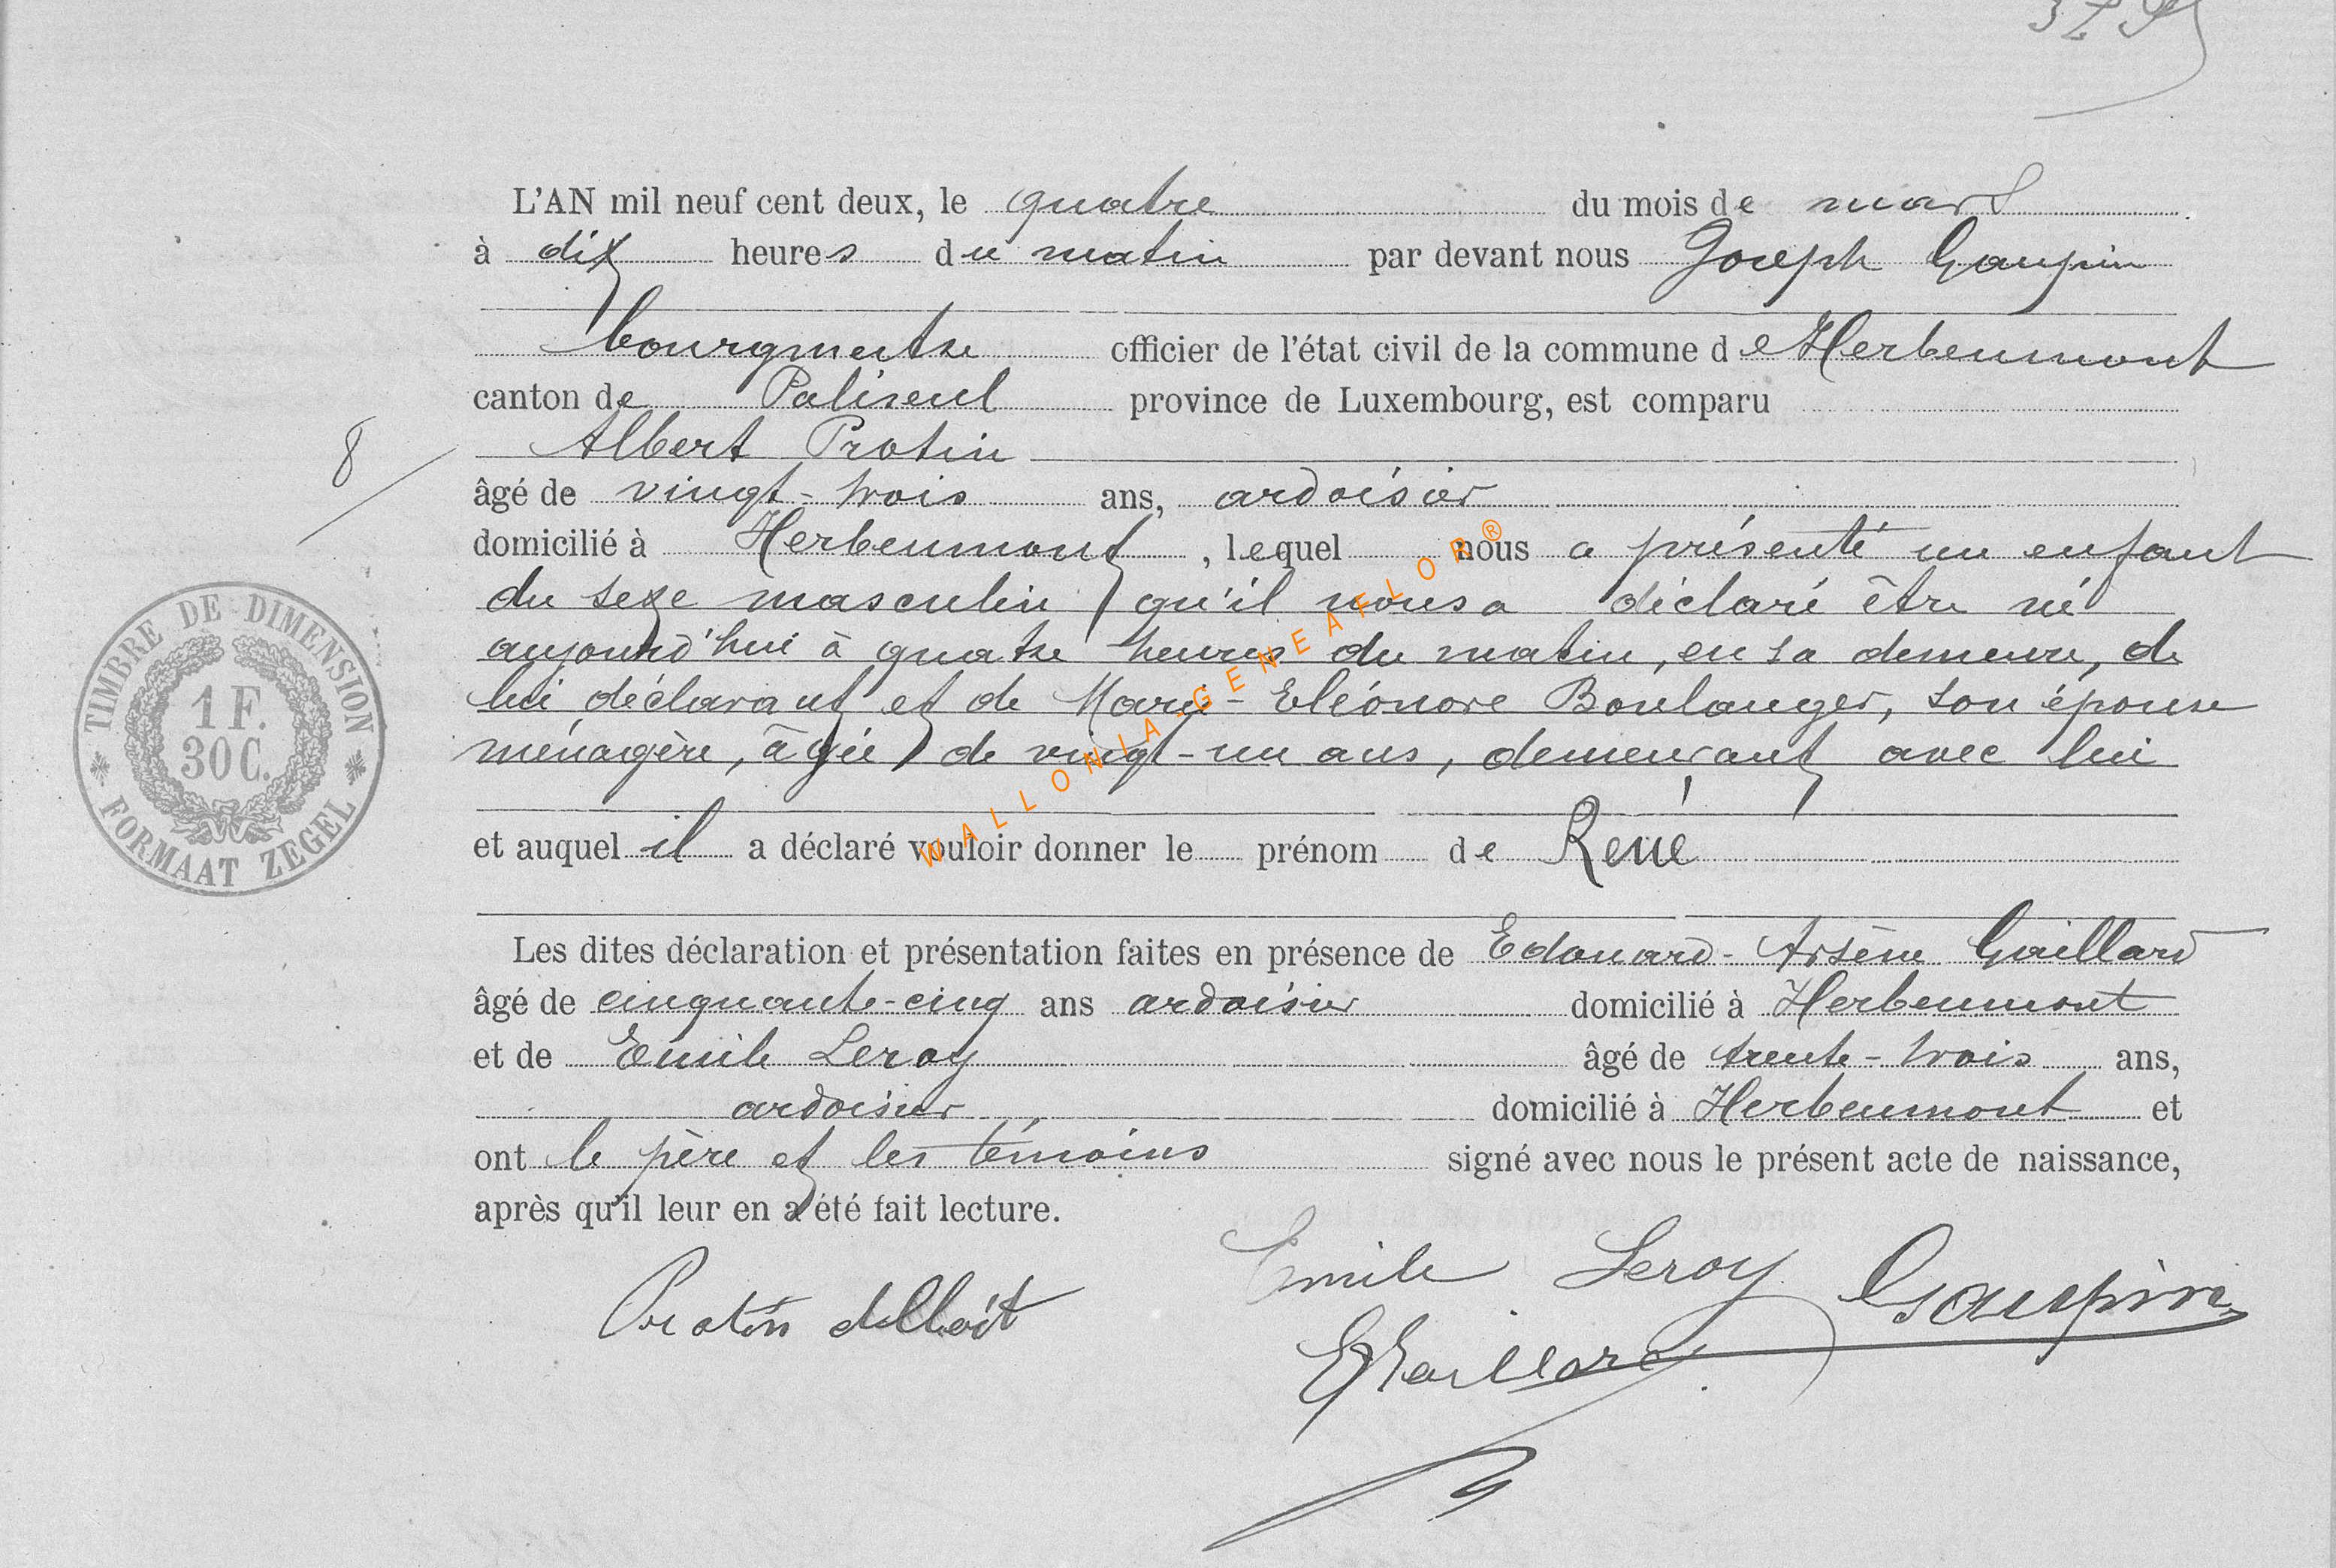 L'AN mil neuf cent deux, le quatre du mois de mars
à dix heures du matin par devant nous Joseph Gaupin
bourgmestre officier de l'état civil de la commune de Herbeumont
canton de Paliseul province de Luxembourg, est comparu
Albert Protin
8
âgé de vingt-trois ans, ardoisier
domicilié à Herbeumont, lequel nous a présenté un enfant
du sexe masculin qu'il nous a déclaré être né
aujourd'hui à quatre heures du matin, en sa demeure, de
lui déclarant et de Marie-Eléonore Boulanger, son épouse
ménagère, âgée de vingt-un ans, demeurant avec lui
et auquel il a déclaré vouloir donner le prénom de René
Les dites déclaration et présentation faites en présence de Edouard-Arsène Gaillard
âgé de cinquante-cinq ans ardoisier domicilié à Herbeumont
et de Emile Leroy âgé de trente-trois ans,
ardoisier domicilié à Herbeumont et
ont le père et les témoins signé avec nous le présent acte de naissance,
après qu'il leur en a été fait lecture.
Emile Leroy Gaupin
Protin
EGaillard
TIMBRE DE DIMENSION
1 F.
30 C.
FORMAAT ZEGEL
WALLONIA-GENEAFLOR®